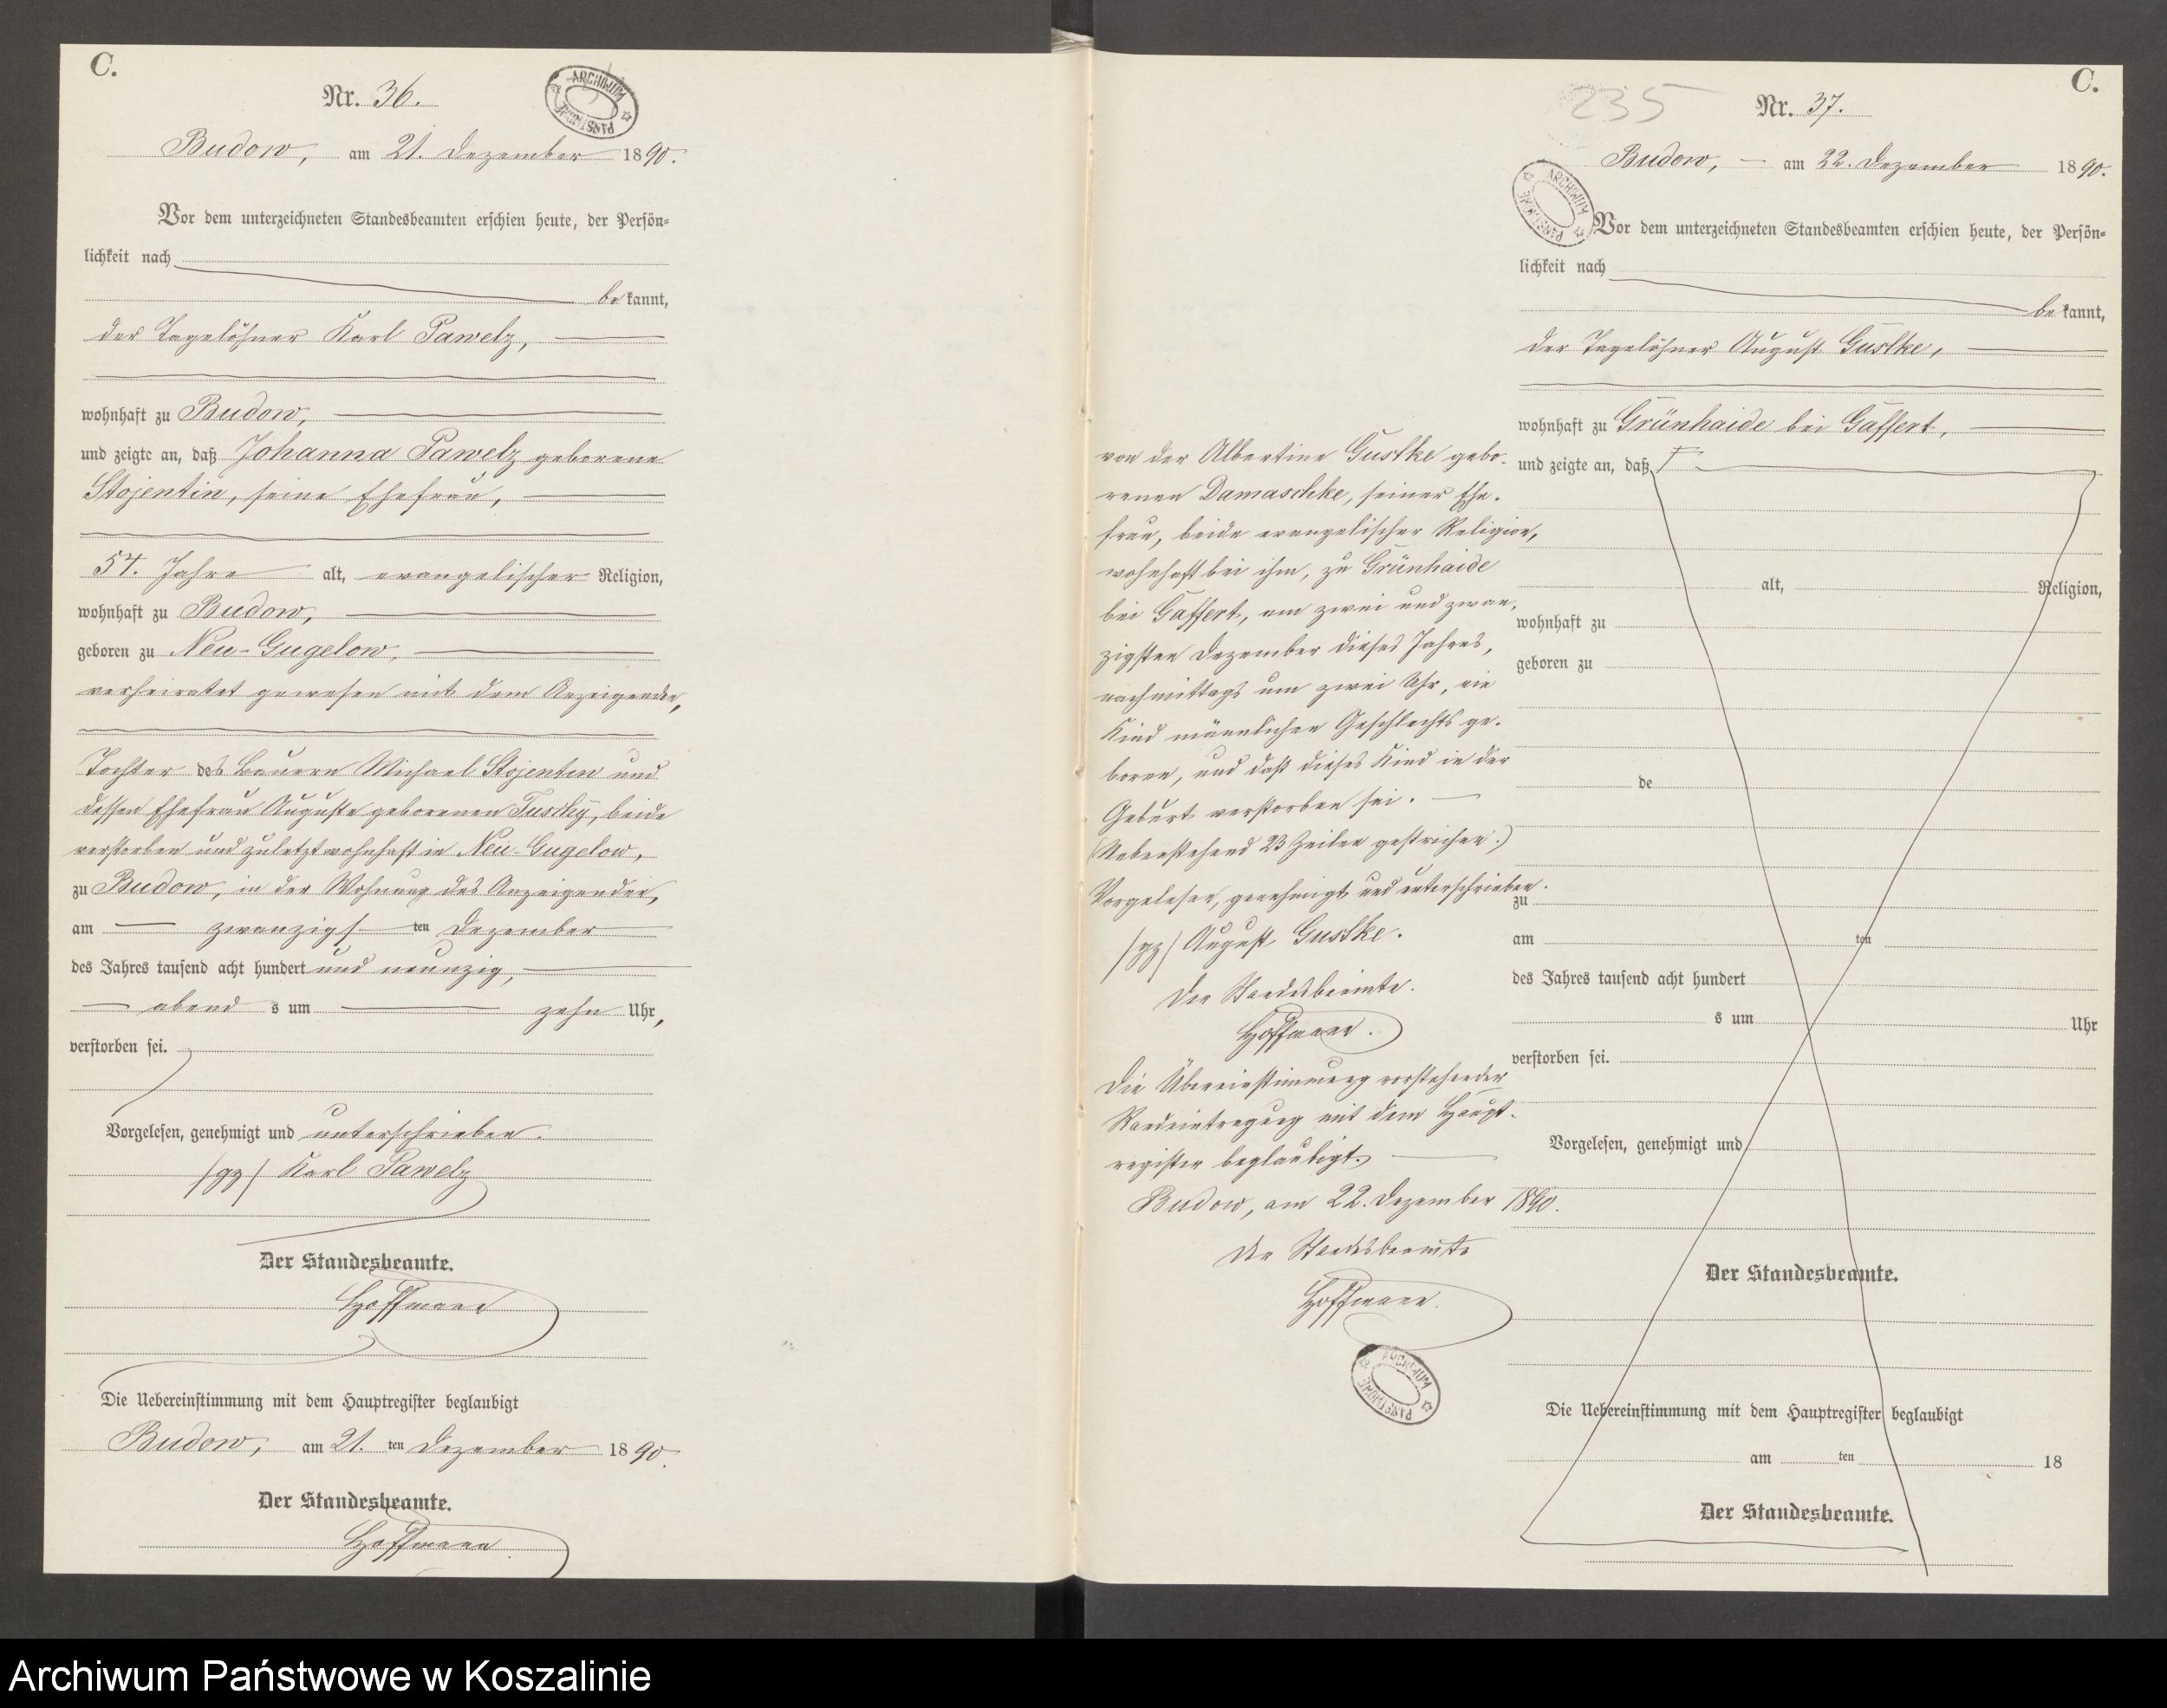 C.
Nr. 36.
ARCHIWUM PAŃSTWOWE
Budow, am 21. Dezember 1890.
Vor dem unterzeichneten Standesbeamten erschien heute, der Persön-
lichkeit nach
bekannt,
der Tagelöhner Karl Pawelz,
wohnhaft zu Budow,
und zeigte an, daß Johanna Pawelz geborene
Stojentin, seine Ehefrau,
54. Jahre alt, evangelischer Religion,
wohnhaft zu Budow,
geboren zu Neu-Gugelow,
verheiratet gewesen mit dem Anzeigenden,
Tochter des Bauern Michael Stojentin und
dessen Ehefrau Auguste geborenen Tuschy, beide
verstorben und zuletzt wohnhaft in Neu-Gugelow,
zu Budow, in der Wohnung des Anzeigenden,
am zwanzigsten Dezember
des Jahres tausend acht hundert und neunzig,
abends um zehn Uhr,
verstorben sei.
Vorgelesen, genehmigt und unterschrieben.
/gz/ Karl Pawelz
Der Standesbeamte.
Hoffmann
Die Uebereinstimmung mit dem Hauptregister beglaubigt
Budow, am 21. ten Dezember 1890.
Der Standesbeamte.
Hoffmann
C.
235
Nr. 37.
Budow, am 22. Dezember 1890.
ARCHIWUM PAŃSTWOWE
Vor dem unterzeichneten Standesbeamten erschien heute, der Persön-
lichkeit nach
bekannt,
der Tagelöhner August Gustke,
wohnhaft zu Grünhaide bei Gaffert,
und zeigte an, daß
von der Albertine Gustke gebo-
renen Damaschke, seiner Ehe-
frau, beide evangelischer Religion,
wohnhaft bei ihm, zu Grünhaide
bei Gaffert, am zwei und zwan-
zigsten Dezember dieses Jahres,
nachmittags um zwei Uhr, ein
Kind männlichen Geschlechts ge-
boren, und daß dieses Kind in der
Geburt verstorben sei.
(Nebenstehend 23 Zeilen gestrichen.)
Vorgelesen, genehmigt und unterschrieben.
/gz/ August Gustke.
Der Standesbeamte.
Hoffmann.
Die Übereinstimmung vorstehender
Randeintragung mit dem Haupt-
register beglaubigt.
Budow, am 22. Dezember 1890.
Der Standesbeamte
Hoffmann.
ARCHIWUM PAŃSTWOWE
alt, Religion,
wohnhaft zu
geboren zu
de
zu
am ten
des Jahres tausend acht hundert
s um Uhr
verstorben sei.
Vorgelesen, genehmigt und
Der Standesbeamte.
Die Uebereinstimmung mit dem Hauptregister beglaubigt
am ten 18
Der Standesbeamte.
Archiwum Państwowe w Koszalinie